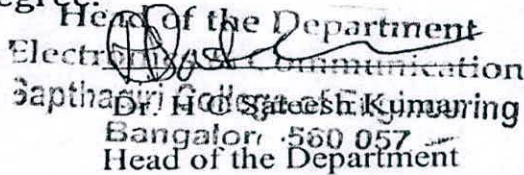 egree.
Head of the Department
Electronics & Communication
Sapthagiri College of Engineering
Dr. H C Sateesh Kumar
Bangalor 560 057
Head of the Department